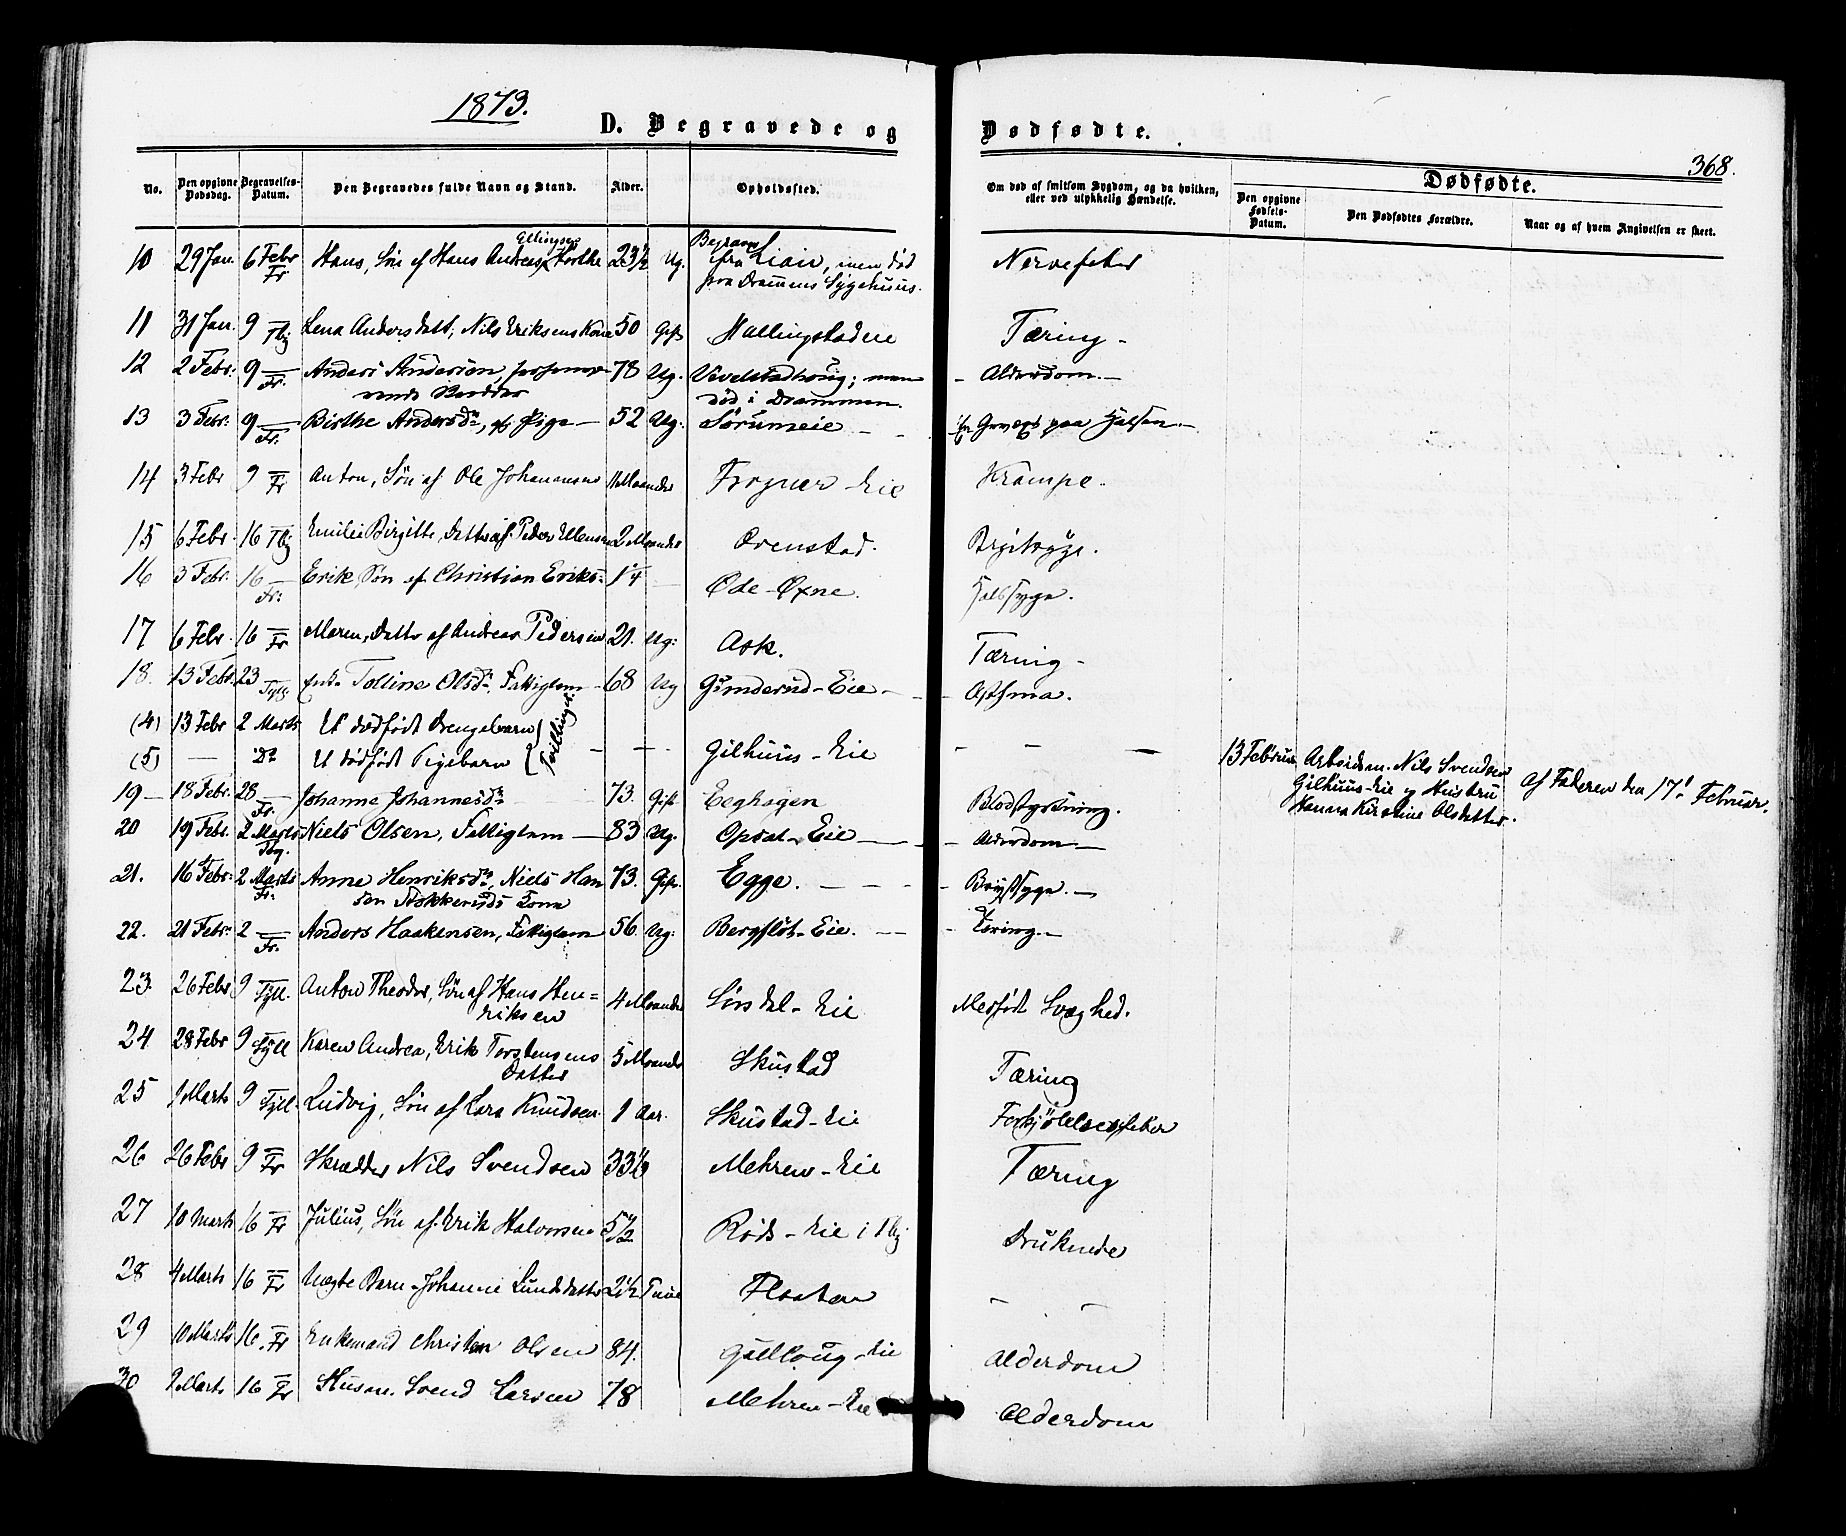 1873.
D. Begravede og Dødfødte.
368.
No.
Den opgivne Dødsdag.
Begravelses-Datum.
Den Begravedes fulde Navn og Stand.
Alder.
Opholdssted.
Om død af smitsom Sygdom, og da hvilken, eller ved ulykkelig Hændelse.
Dødfødte.
Den opgivne Fødsels-Datum.
Den Dødfødtes Forældre.
Naar og af hvem Angivelsen er skeet.
10 29 Jan. 6 Febr Fr Hans, Søn af Hans Andreas Ellingsen 23½ Ug. fra Lian, men død paa Drammens Sygehuus. Nervefeber
11 31 Jan. 9 — Tbg Lena Andersdatt, Nils Eriksens Kone 50 Gift Hallingstadeie Tæring -
12 2 Febr: 9 — Fr. Anders Anderson, 78 Ug. Vivelstadhoug; men død i Drammen. - Alderdom. —
13 3 Febr: 9 — Fr. Birthe Andersdr, Pige — 52 Ug. Sørumeie - - En Gevæxt paa Halsen. —
14 3 Febr 9 — Fr Anton, Søn af Ole Johannesen 11 Maaneder Frogner Eie Krampe.
15 6 Febr 16 — Tbg Emilie Birgitte, Datter af Peder Ellensen 2 Maaneder Ovenstad. Brystsyge.
16 3 Febr. 16 — Fr: Erik Søn af Christian Eriks: 1¼ — Øde-Øxne. Halssyge.
17 6 Febr. 16 — Fr Maren, Dattr af Andreas Pedersen 21. Ug: Ask. Tæring -
18. 13 Febr. 23 — Tyll Enke Tolline Olsdr, Fattiglem - 68 Ug Gunderud-Eie - - Asthma.
(4) 13 Febr 2 Marts Et dødfødt Drengebarn } Tvillinger
(5) — Do Et dødfødt Pigebarn Gilhuus-Eie - - — 13 Februar Arbeidsm. Nils Svendsen Gilhuus-Eie og Hustru Hanna Kirstine Olsdatter. Af Faderen den 17d Februar.
19 — 18 Febr. 28 — Fr. Johanne Johannesdr 73. Gift Eeghagen Blodstyrtning.
20 19 Febr. 2 Marts Tbg. Niels Olsen, Fattiglem — 83 Ug. Opsal-Eie — - - Alderdom —
21. 16 Febr: 2 Marts Fr: Anne Henriksdr, Niels Hansen Stokkeruds Kone 73. Gift. Egge. - - - - Brystsyge. —
22. 21 Febr: 2 — Fr. Anders Haakensen, Fattiglem 56. Ug. Bergflöt-Eie. — - Tæring. —
23. 26 Febr 9 — Tyll. Anton Theodor, Søn af Hans Henriksen 4 Maaneder Sørsdal-Eie Medfødt Svaghed.
24 28 Febr 9 Tyll Karen Andrea, Erik Torstensens Datter 5 Maaneder Skustad Tæring
25 1 Marts 9 — Tyll. Ludvig, Søn af Lars Knudsen 1 Aar. Skustad-Eie Forkjølelsesfeber
26 26 Febr 9 — Fr Skrædder Nils Svendsen 33½ Mehren-Eie Tæring
27 10 Marts 16 — Fr Julius, Søn af Erik Halvorsen 5½ Røds-Eie i Tbg Druknede
28 4 Marts 16 — Fr Uægte Barn - Johanne 2½ Flaaten -
29 10 Marts 16. — Fr Enkemand Christen Olsen 84. Gullhoug-Eie Alderdom
30 9 Marts 16 — Fr Husm. Svend Larsen 78 Mehren-Eie Alderdom